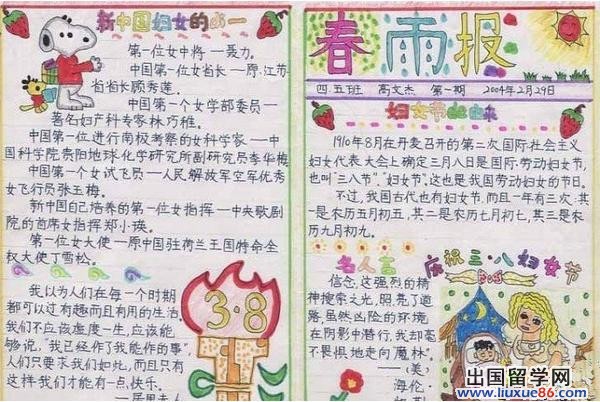 新中国妇女的第一
第一位女中将──聂力。
中国第一位女省长──原江苏
省省长顾秀莲。
中国第一个女学部委员──
著名妇产科专家林巧稚。
中国第一位进行南极考察的女科学家──中
国科学院贵阳地球化学研究所副研究员李华梅
中国第一个女试飞员──人民解放军空军优秀
女飞行员张玉梅。
新中国自己培养的第一位女指挥──中央歌剧
院的首席女指挥郑小瑛。
第一位女大使──原中国驻荷兰王国特命全
权大使丁雪松。
我以为人们在每一个时期
都可以过有趣而且有用的生活。
我们不应该虚度一生,应该能
够说,"我已经作了我能作的事",
人们只要求我们如此,而且只有
这样我们才能有一点快乐。
──居里夫人
3·8
春雨报
四.五班 高文杰 第一期 2004年2月29日
妇女节的由来
1910年8月在丹麦召开的第二次国际社会主义
妇女代表大会上确定三月八日是国际劳动妇女节,
也叫"三八节"、"妇女节"。这也是我国劳动妇女的节日。
不过,我国古代也有妇女节,而且一年有三次:其
一是农历五月初五,其二是农历七月初七,其三是农
历九月初九。
名人言
庆祝三·八妇女节
信念,这强烈的精
神搜索之光,照亮了道
路,虽然凶险的环境
在阴影中潜行,我却毫
不畏惧地走向魔林。
──(美)
海伦·
出国留学网
www.liuxue86.com